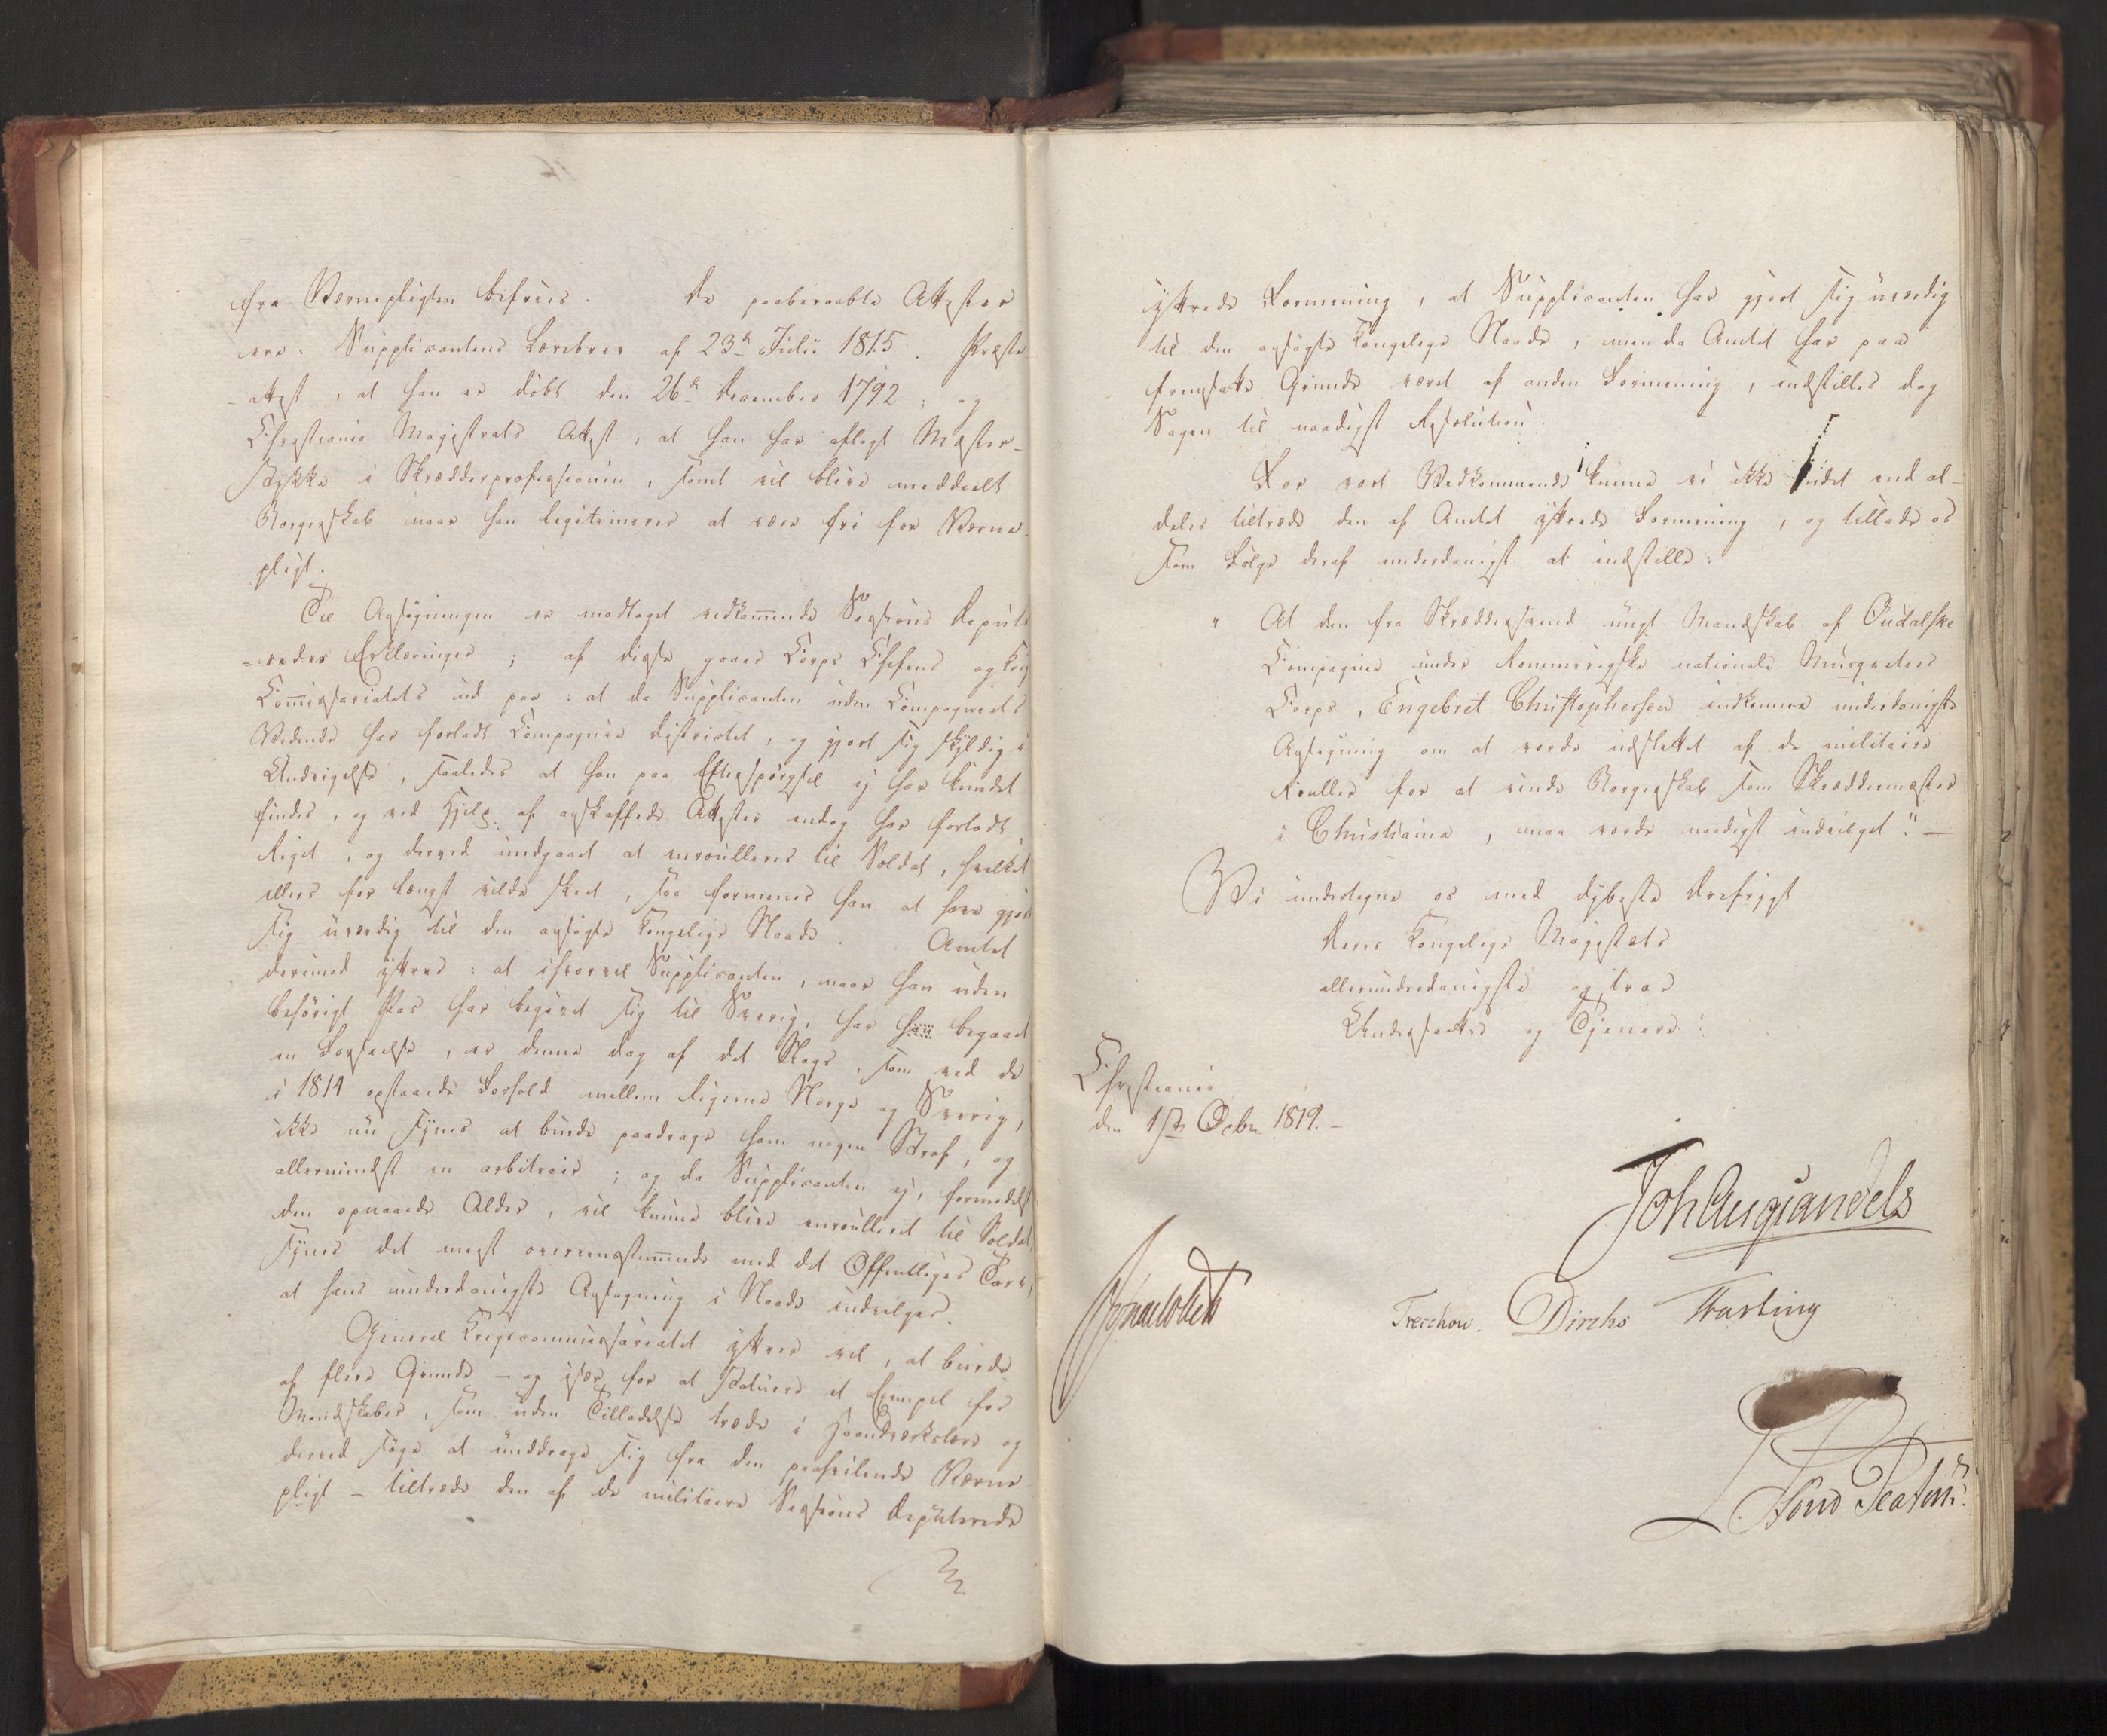 fra Værnepligten befries. De paaberaabte Attester
ere: Supplicantens Lærebrev af 23de Julii 1815. Præste
-attest, at han er döbt den 26de December 1792; og
Christiania Magistrats Attest, at han har aflagt Mester-
stykke i Skrædderprofessionen, samt vil blive meddeelt
Borgerskab naar han legitimerer at være fri for Værne-
pligt.
Til Ansøgningen er modtaget vedkom̅ende Sessions Depute
=redes Erklæringer; af disse gaaer Corps Chefens og Krigs
Com̅issariatets ud paa: at da Supplicanten uden Compagniets
Vidende har forladt Compagnie Districtet, og gjort sig skyldig i
Undvigelse, saaledes at han paa Efterspörgsel ej har kundet
findes, og ved Hjelp af anskaffede Attester endog har forladt
Riget, og derved undgaaet at enroulleres til Soldat, hvilket
ellers for længst vilde skeet, saa formenes han at have gjort
sig uværdig til den ansögte Kongelige Naade. Amtet
derimod yttrer: at ihvorvel Supplicanten, naar han uden
behörigt Pas har begivet sig til Sverig, har han begaaet
en Forseelse, er denne dog af det Slags, som ved de
i 1814 opstaaede Forhold mellem Rigerne Norge og Sverig,
ikke nu synes at burde paadrage ham nogen Straf, og
allermindst en arbitrair; og da Supplicanten ej, formedelst
den opnaaede Alder, vil kunne blive enroulleret til Soldat,
synes det meest overeensstem̅ende med det Offentliges Tarv,
at hans underdanigste Ansøgning i Naade indvilges.
General Krigscommissariatet yttrer vel, at burde
af flere Grunde – og især for at statuere et Exempel for
Mandskaber, som uden Tilladelse træde i Haandverkslære og
derved søge at unddrage sig fra den paahvilende Værne
pligt – tiltræde den af de militaire Sessions Deputerede
yttrede Formening, at Supplicanten har gjort sig uværdig
til den ansögte Kongelige Naade, men da Amtet har paa
fremsatte Grunde været af anden Formening, indstilles dog
Sagen til naadigst Resolution.
For vort Vedkommende kunne vi ikke andet end al-
deles tiltræde den af Amtet yttrede Formening, og tillade os
som Fölge deraf underdanigst at indstille:
" At den fra Skræddersvend ungt Mandskab af Oudalske
Compagnie under Rommerigske nationale Musqueteer
Corps, Engebret Christophersen indkomne underdanigste
Ansøgning om at vorde udslettet af de militaire
Roller for at vinde Borgerskab som Skræddermester
i Christiania, maa vorde naadigst indvilget." –
Vi undertegne os med dybeste Ærefrygt
Deres Kongelige Majestæts
allerunderdanigste og troe
Undersaatter og Tjenere:
Christiania
den 1ste Octbr 1819. –
Joh Aug Sandels
Treschow. Diriks Fasting